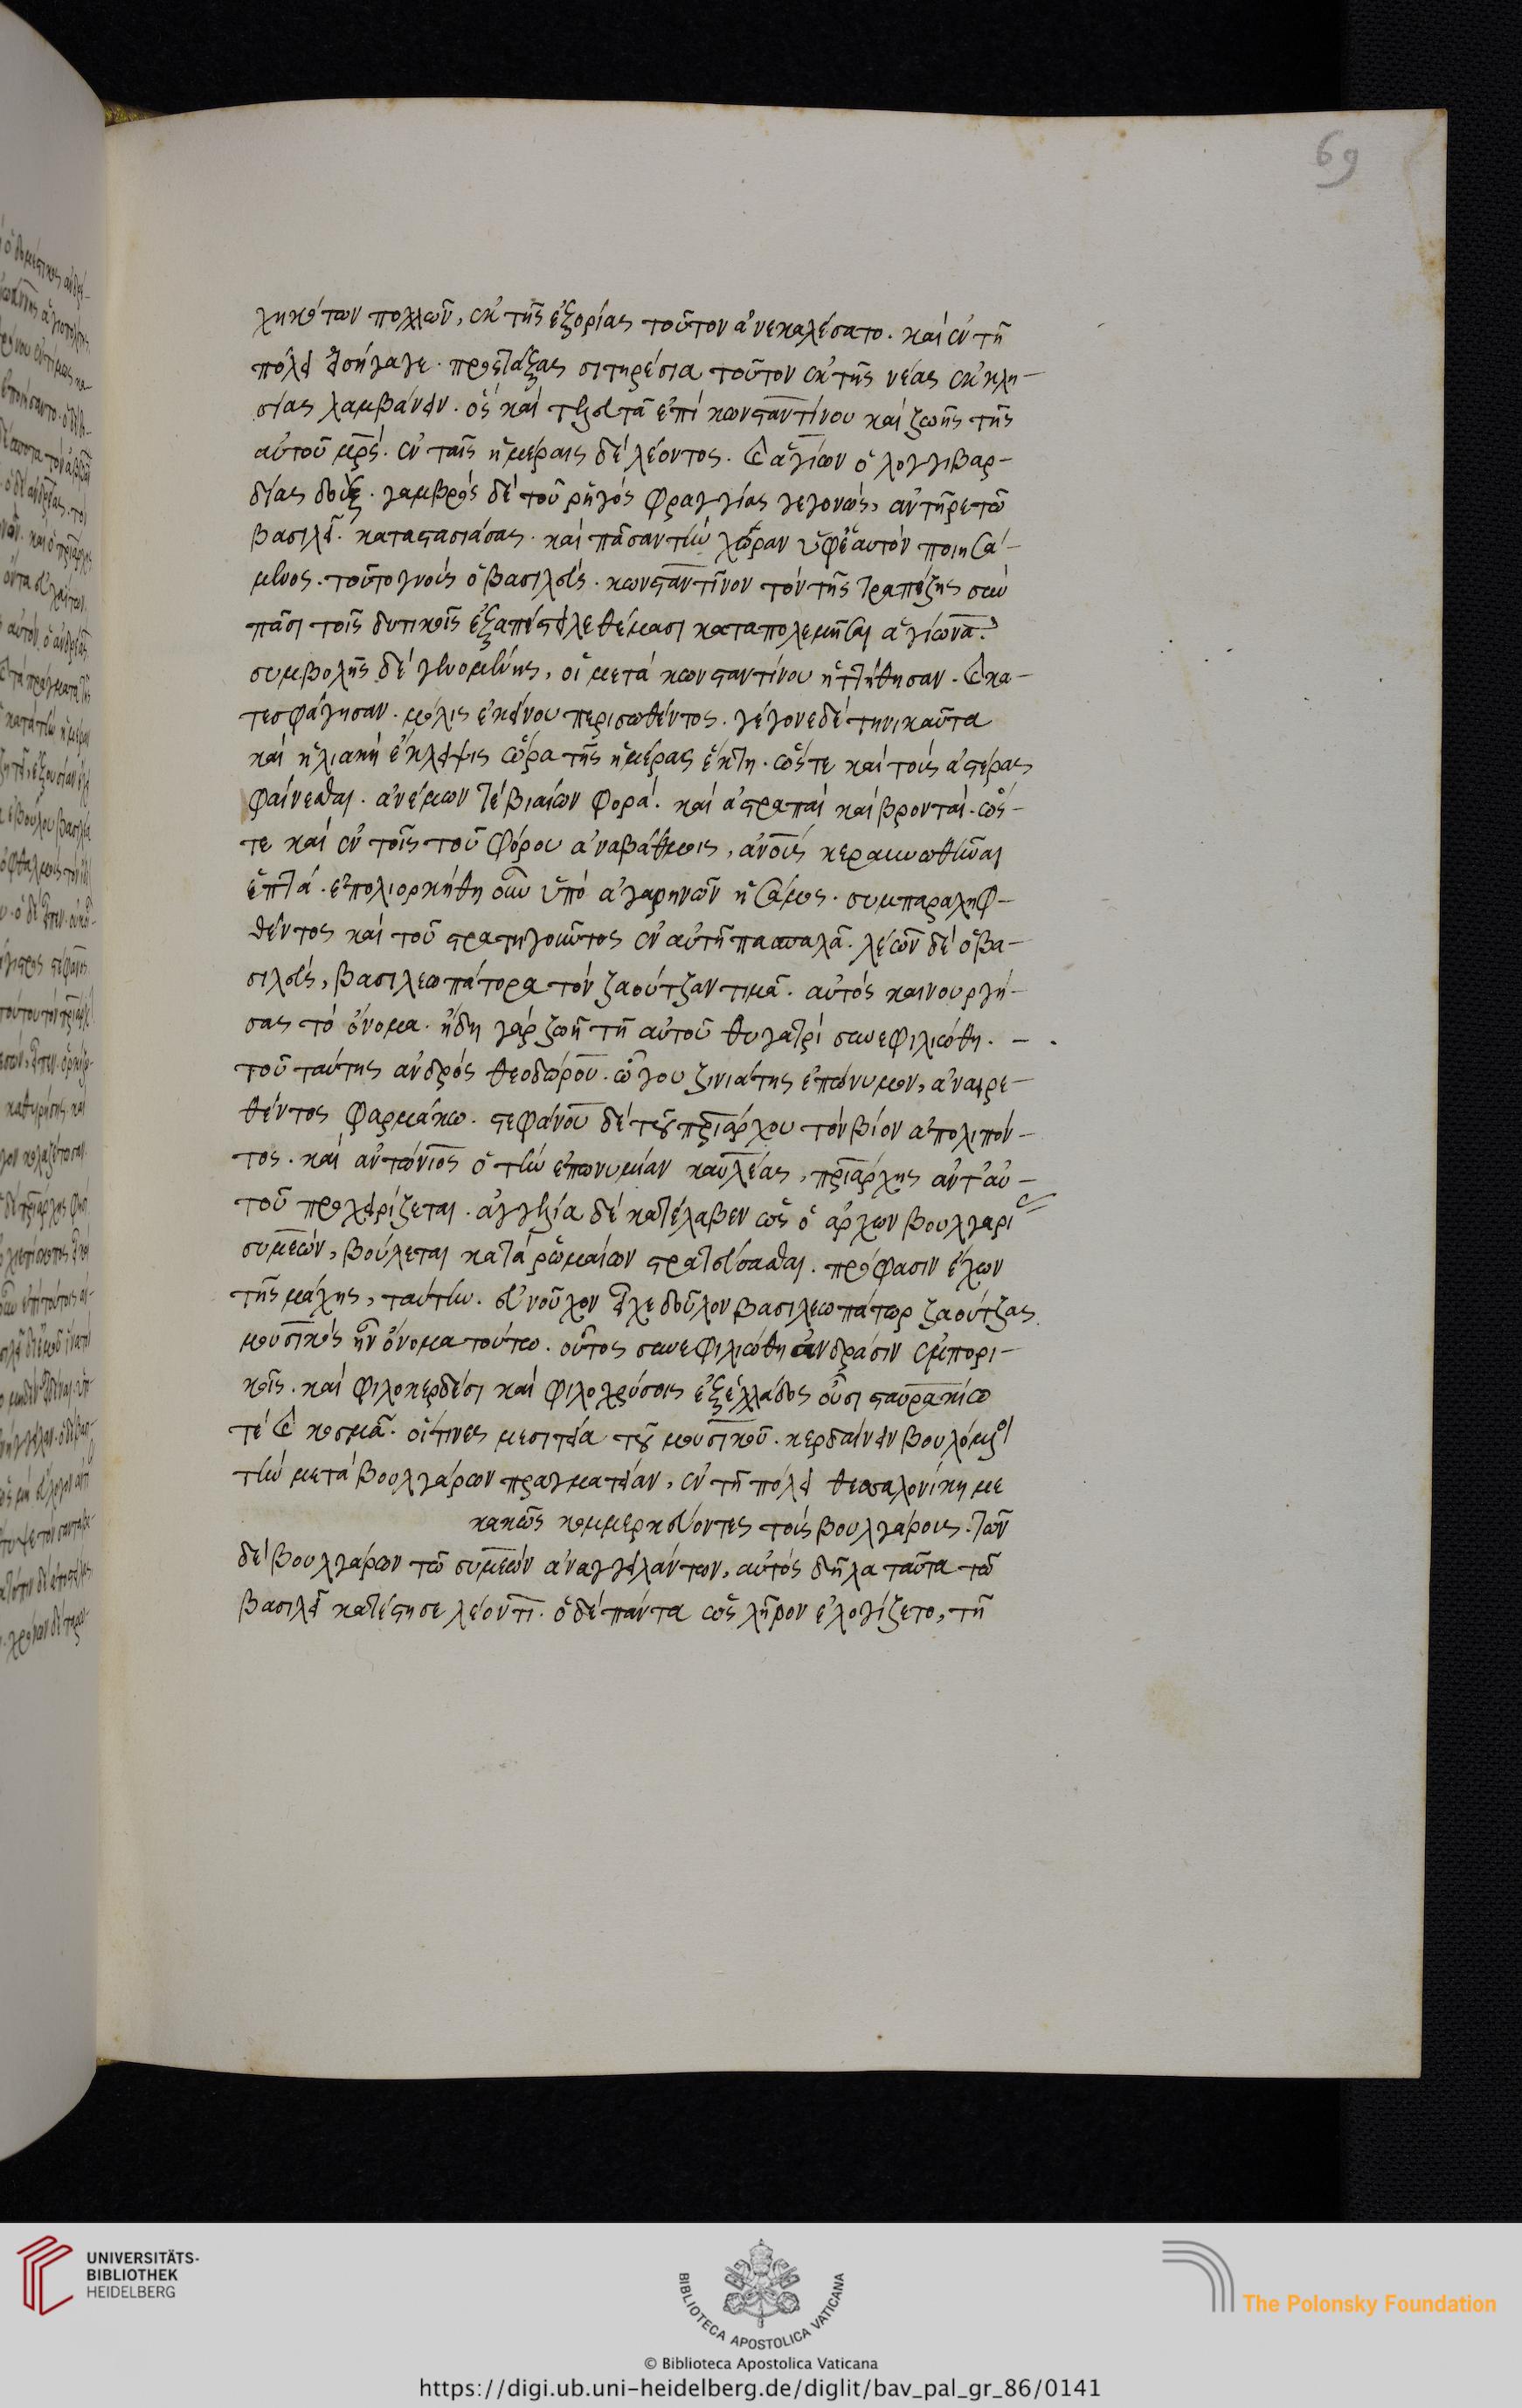 69
χηκότων πολλῶν, ἐκ τῆς ἐξορίας τοῦτον ἀνεκαλέσατο. καὶ ἐν τῆ
πόλει εἰσήγαγε. προστάξας σιτηρέσια τοῦτον ἐκ τῆς νέας ἐκκλη-
σίας λαμβάνειν. ὃς καὶ τελευτᾶ ἐπὶ κωνσταντίνου καὶ ζωῆς τῆς
αὐτοῦ μρς. ἐν ταῖς ἡμέραις δὲ λέοντος. καὶ ἀγίων ὁ λογγιβαρ-
δίας δοὺξ. γαμβρὸς δὲ τοῦ ῥηγὸς φραγγίας γεγονὼς, ἀντῆρε τῶ
βασιλεῖ. καταστασιάσας. καὶ πᾶσαν τὴν χώραν ὑφ' ἑαυτὸν ποιησά-
μενος. τοῦτο γνοὺς ὁ βασιλεὺς. κωνσταντῖνον τὸν τῆς τραπέζης σὺν
πᾶσι τοῖς δυτικοῖς ἐξαπέστειλε θέμασι καταπολεμῆσαι ἀγίωνα.
συμβολῆς δὲ γενομένης, οἱ μετὰ κωνσταντίνου ἡττήθησαν. καὶ κα-
τεσφάγησαν. μόλις ἐκείνου περισωθέντος. γέγονε δὲ τηνικαῦτα
καὶ ἡλιακὴ ἔκλειψις ὥρα τῆς ἡμέρας ἕκτη. ὥστε καὶ τοὺς ἀστέρας
φαίνεσθαι. ἀνέμων τὲ βιαίων φορά. καὶ ἀστραπαὶ καὶ βρονταὶ. ὥς-
τε καὶ ἐν τοῖς τοῦ φόρου ἀναβάθμοις, ἀνους κεραυνωθῆναι
ἑπτά. ἐπολιορκήθη οὖν ὑπὸ ἀγαρηνῶν ἡ σάμος. συμπαραληφ-
θέντος καὶ τοῦ στρατηγοῦντος ἐν αὐτῆ πασπαλᾶ. λέων δὲ ὁ βα-
σιλεὺς, βασιλεωπάτορα τὸν ζαούτζαν τιμᾶ. αὐτὸς καινουργή-
σας τὸ ὄνομα. ἤδη γὰρ ζωῆ τῆ αὐτοῦ θυγατρὶ συνεφιλιώθη. -
τοῦ ταύτης ἀνδρὸς θεοδώρου. ὦ γουζινιάτης ἐπώνυμον, ἀναιρε-
θέντος φαρμάκω. στεφάνου δὲ τοῦ πριάρχου τὸν βίον ἀπολιπόν-
τος. καὶ ἀντώνιος ὁ τὴν ἐπωνυμίαν καυλέας, πριάρχης ἀντ' αὐ-
τοῦ προχειρίζεται. ἀγγελία δὲ κατέλαβεν ὡς ὁ ἄρχων βουλγαρί
συμεὼν, βούλεται κατὰ ῥωμαίων στρατεύσασθαι. πρόφασιν ἔχων
τῆς μάχης, ταύτην. εὐνοῦχον εἶχε δοῦλον βασιλεωπάτωρ ζαούτζας
μουσικὸς ἦν ὄνομα τούτω. οὗτος συνεφιλιώθη ἀνδράσιν ἐμπορι-
κοῖς. καὶ φιλοκερδέσι καὶ φιλοχρύσοις ἐξ ἑλλάδος οὖσι σταυρακίω
τὲ καὶ κοσμᾶ. οἵτινες μεσιτεία τοῦ μουσικοῦ. κερδαίνειν βουλόμενοι
τὴν μετὰ βουλγάρων πραγματείαν, ἐν τῆ πόλει θεσσαλονίκη με
κακῶς κομμερκεύοντες τοὺς βουλγάρους. τῶν
δὲ βουλγάρων τῶ συμεὼν ἀναγγειλάντων, αὐτὸς δῆλα ταῦτα τῶ
βασιλεῖ κατέστησε λέοντι. ὁ δὲ πάντα ὡς λῆρον ἐλογίζετο, τῆ
UNIVERSITÄTS-
BIBLIOTHEK
HEIDELBERG
BIBLIOTECA APOSTOLICA VATICANA
© Biblioteca Apostolica Vaticana
The Polonsky Foundation
https://digi.ub.uni-heidelberg.de/diglit/bav_pal_gr_86/0141